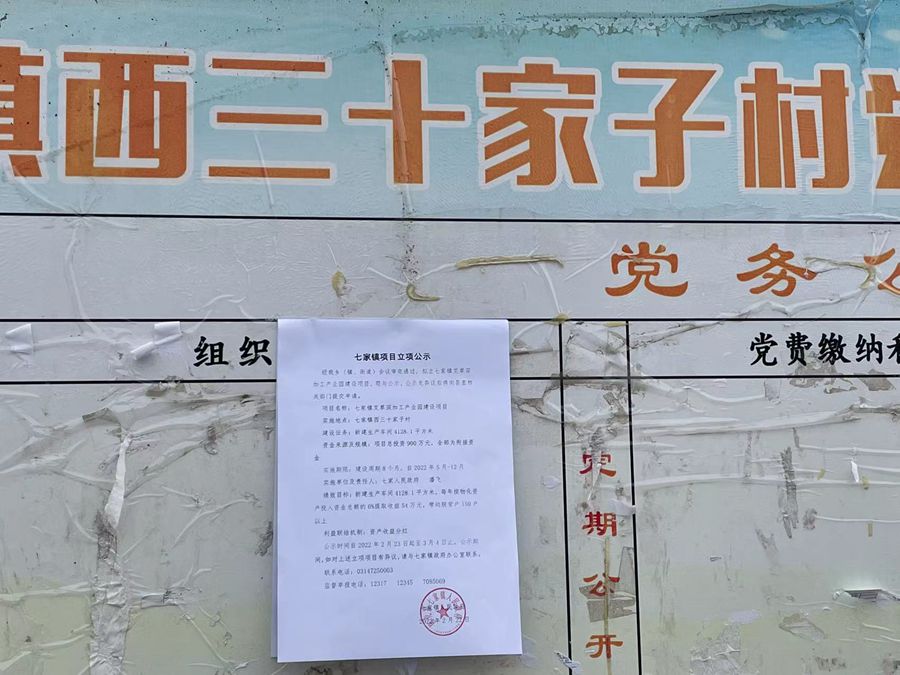 镇西三十家子村党
党务公
组织
党费缴纳和
定期公开
七家镇项目立项公示
经我乡(镇、街道)会议审定通过,拟立七家镇艾草深
加工产业园建设项目,现与公示,公示无异议后将向县直相
关部门提交申请。
项目名称:七家镇艾草深加工产业园建设项目
实施地点:七家镇西三十家子村
建设任务:新建生产车间4128.1平方米
资金来源及规模:项目总投资900万元,全部为衔接资
金
实施期限:建设周期8个月,自2022年5月-12月
实施单位及责任人:七家人民政府 潘飞
绩效目标:新建生产车间4128.1平方米,每年按物化资
产投入资金总额的6%提取收益54万元,带动脱贫户150户
以上
利益联结机制:资产收益分红
公示时间自2022年2月23日起至3月4日止。公示期
间,如对上述立项项目有异议,请与七家镇政府办公室联系。
联系电话:03147250003
监督举报电话:12317 12345 7095069
七家镇人民政府
2022年2月23日